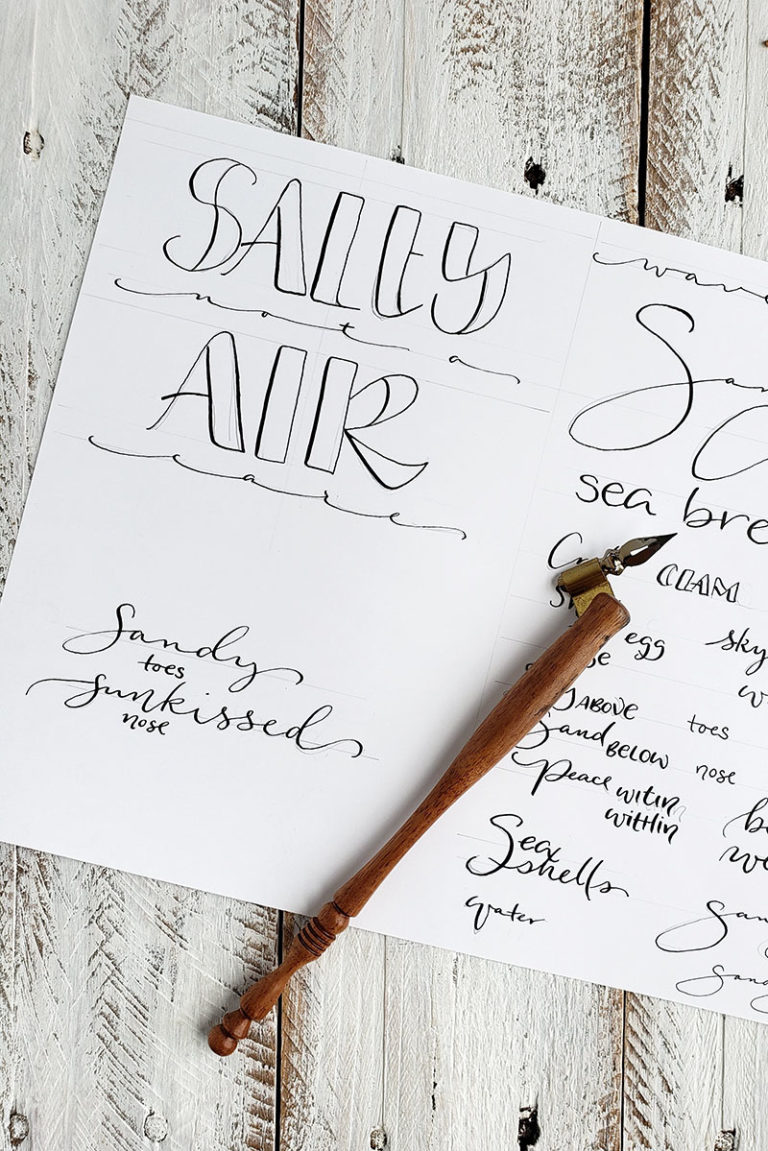 SALTY
not a
AIR
care
Sandy
toes
sunkissed
nose
wave
San
sea bre
CLAM
egg sky
ABOVE toes
Sand BELOW nose
peace witin
Sea
shells
water
San
sand